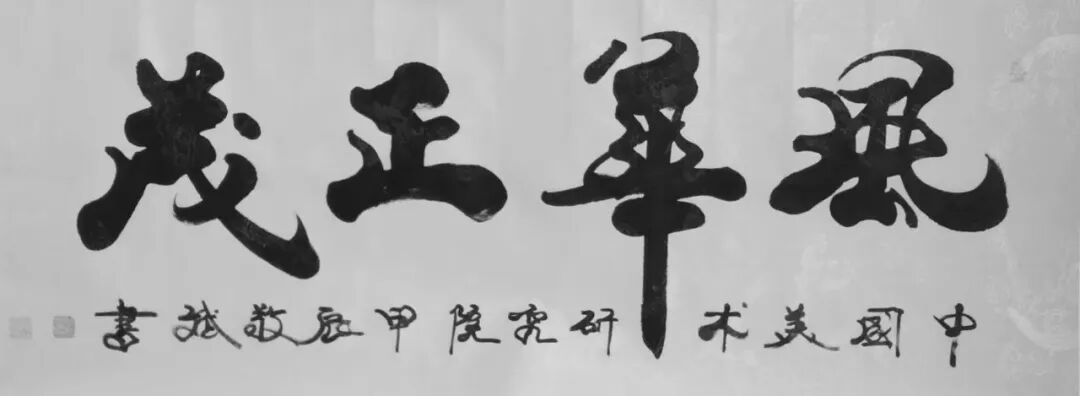 風華正茂
中國美术研究院甲辰敬斌書